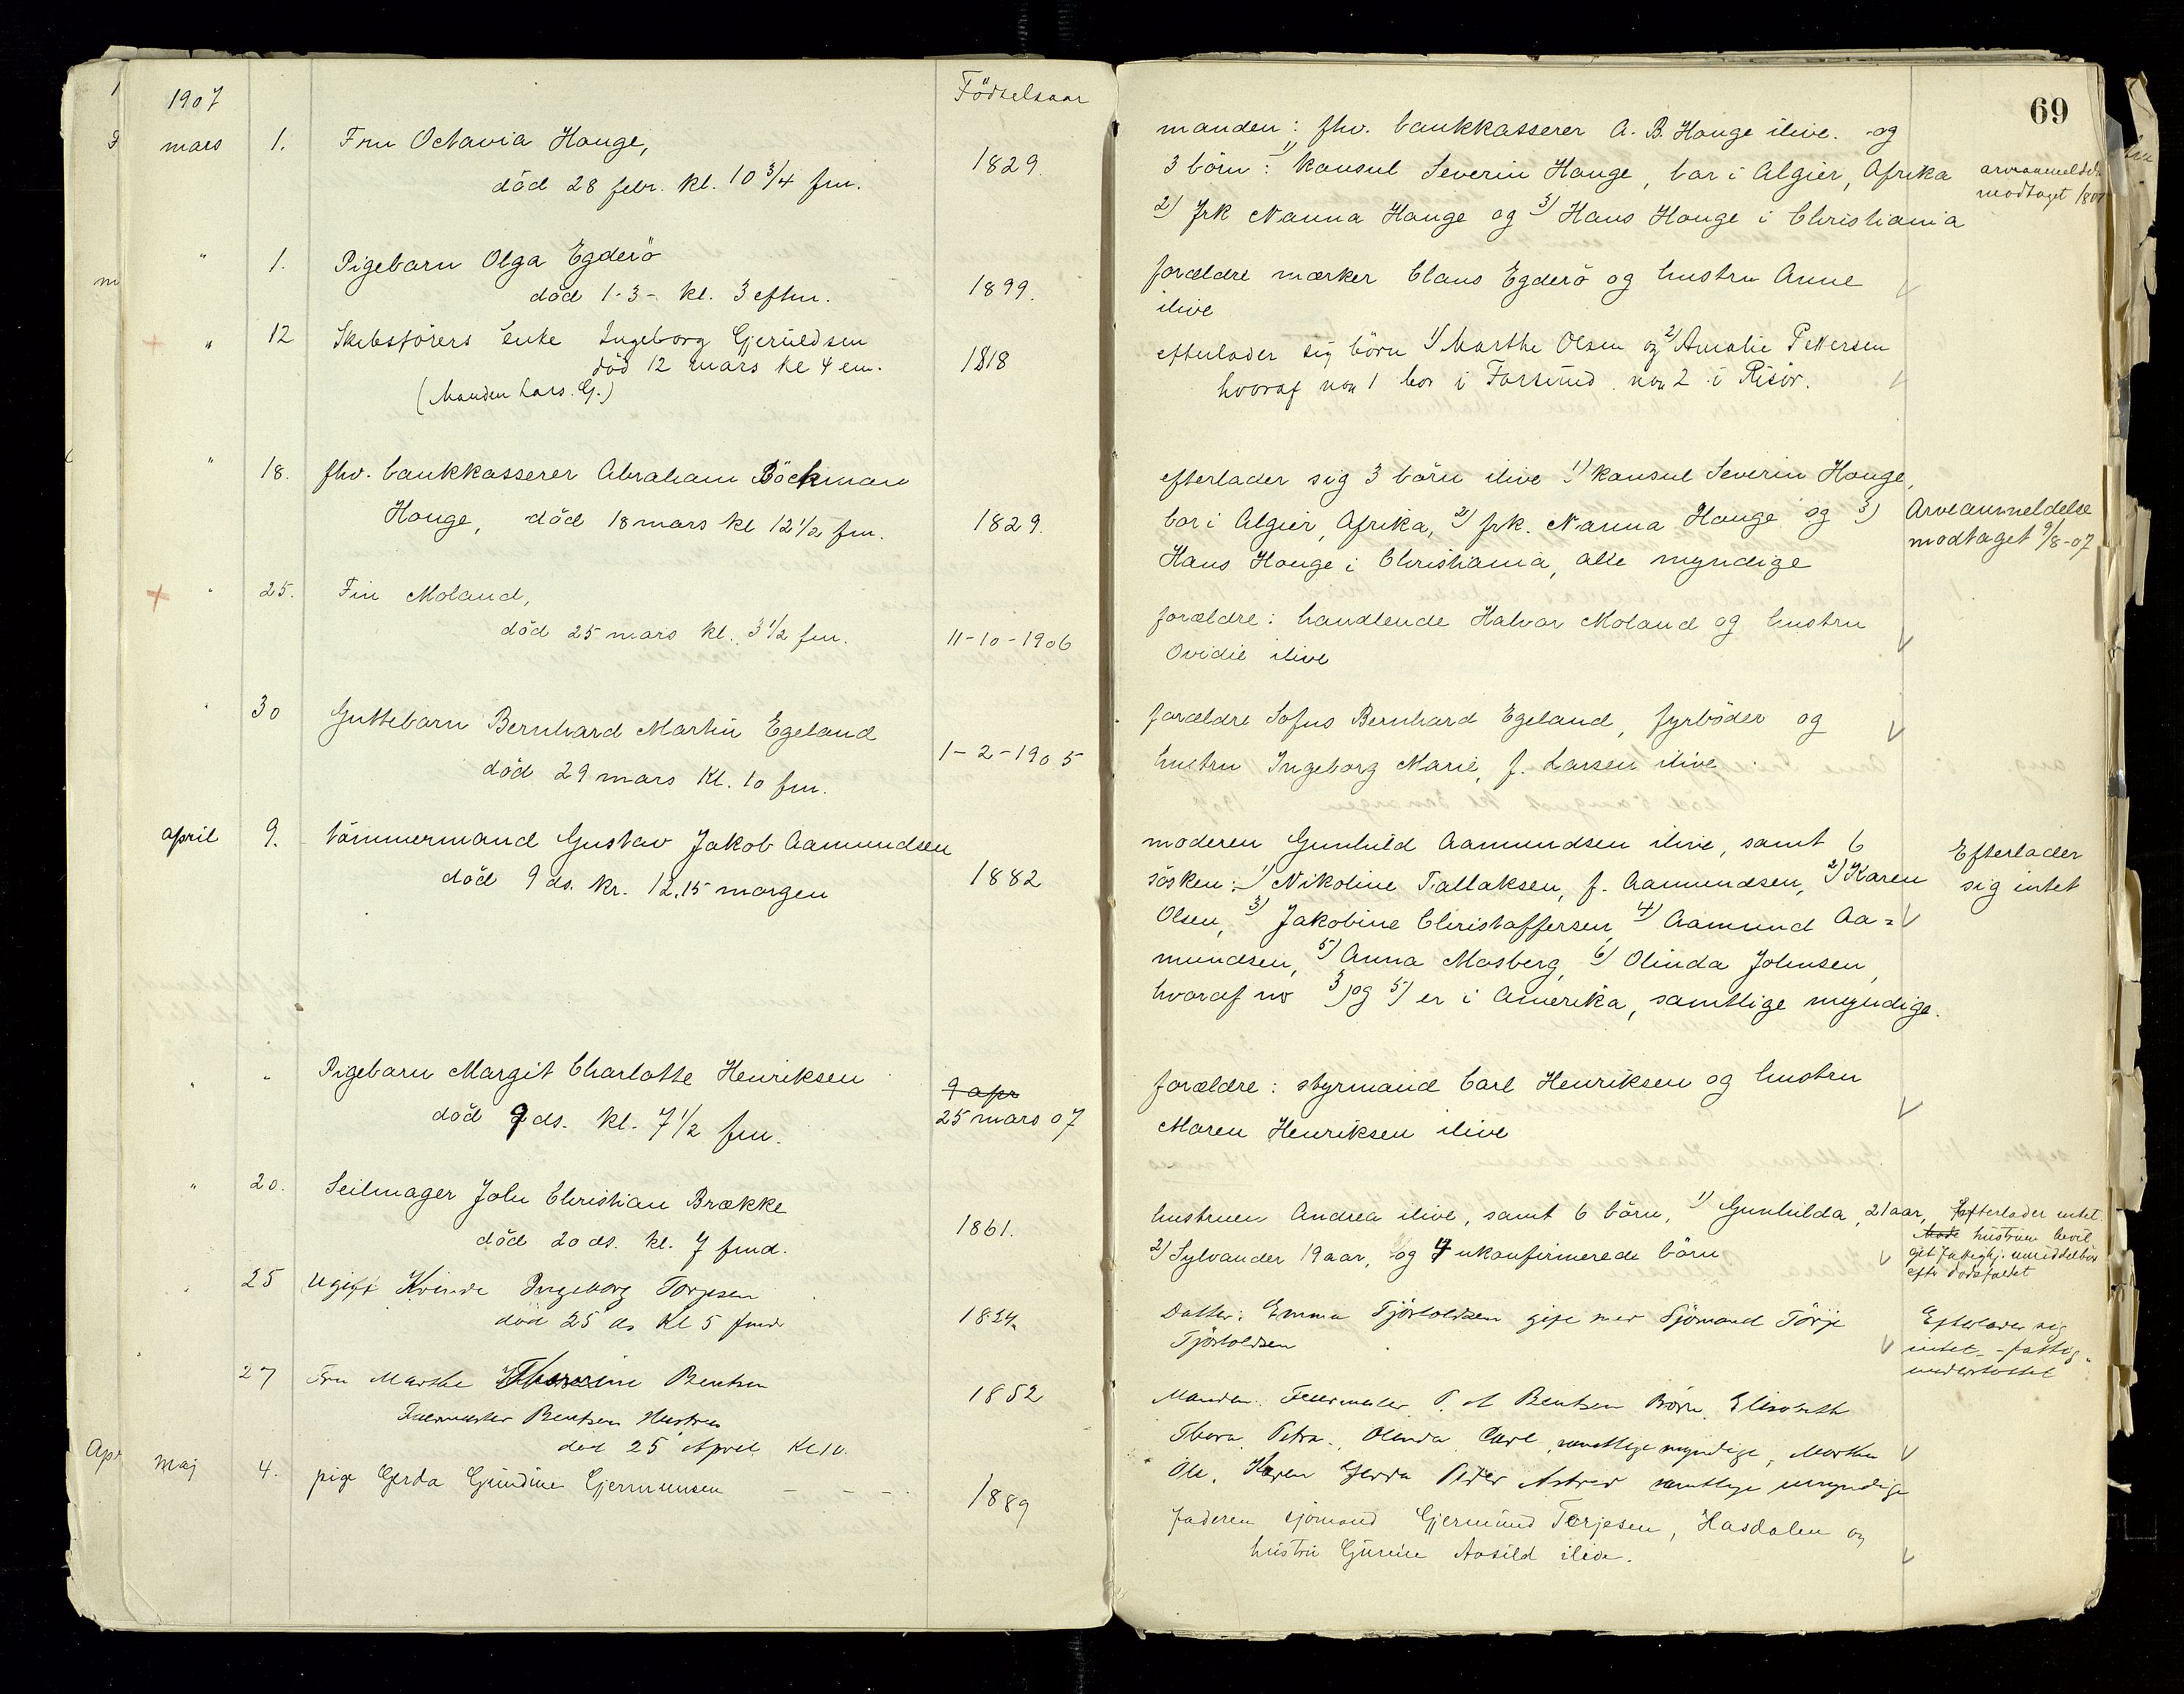 69
1907
Födselsaar
mars 1. Fru Octavia Houge,
död 28 febr. kl. 10 3/4 fm.
1829.
manden: fhv. bankkasserer A. B. Houge ilive. og
3 börn: 1) konsul Severin Houge, bor i Algier, Afrika
2) frk Nanna Houge og 3) Hans Houge i Christiania
modtaget
" 1. Pigebarn Olga Egderö
död 1-3- kl. 3 eftm.
1899.
forældre mærker Claus Egderö og hustru Anne
ilive
" 12 Skibsförers Enke Ingeborg Gjeruldsen
död 12 mars kl 4 em.
(Manden Lars. G.)
1818
efterlader sig börn 1) Marthe Olsen og 2) Amalie Pettersen
hvoraf non 1 bor i Farsund. non 2 i Risör.
" 18. fhv. bankkasserer Abraham Böckman
Houge, död 18 mars kl 12 1/2 fm.
1829.
efterlader sig 3 börn ilive 1) konsul Severin Houge,
bor i Algier, Afrika, 2) frk. Nanna Houge og 3)
Hans Houge i Christiania, alle myndige
Arveanmeldelse
modtaget 9/8-07
" 25. Fin Moland,
död 25 mars kl. 3 1/2 fm.
11-10-1906
forældre: handlende Halvor Moland og hustru
Ovidie ilive
" 30 Guttebarn Bernhard Martin Egeland
död 29 mars kl. 10 fm.
1-2-1905
forældre Sofus Bernhard Egeland, fyrböder og
hustru Ingeborg Marie, f. Larsen ilive
april 9. tömmermand Gustav Jakob Aamundsen
död 9 ds. kr. 12.15 morgen
1882
moderen Gunhild Aamundsen ilive, samt 6
sösken: 1) Nikoline Tallaksen, f. Aamundsen, 2) Karen
Olsen, 3) Jakobine Christoffersen, 4) Aamund Aa=
mundsen, 5) Anna Mosberg, 6) Olinda Johnsen,
hvoraf no 3) og 5) er i Amerika, samtlige myndige.
Efterlader
sig intet
" " Pigebarn Margit Charlotte Henriksen
död 9 ds. kl. 7 1/2 fm.
9 apr
25 mars 07
forældre: styrmand Carl Henriksen og hustru
Maren Henriksen ilive
" 20. Seilmager John Christian Brække
död 20 ds. kl. 7 fmd.
1861.
hustruen Andrea ilive, samt 6 börn, 1) Gunhilda, 21 aar,
2) Sylvander 19 aar, og 4 ukonfirmerede börn
Efterlader intet.
hustruen bevil
get umiddelbar
efter dödsfaldet
" 25 Ugift Kvinde Ingeborg Torjesen
död 25 ds Kl 5 fmd
Datter: Emma Tjöstolvsen gift med Sjömand Törje
Tjöstolvsen
Efterlader sig
intet - fattig
understöttet
27 Fru Marthe Bentsen
Bentsen Hustru
död 25 April Kl 10.
1852
Manden: P. A Bentsen Börn Elisabeth
Thora, Petra, Olinda Carl, samtlige myndige, Marthe
Ole, Karen Gerda Peder Astrid samtlige umyndige
maj 4. pige Gerda Gundine Gjermunsen - - -
1889
faderen sjömand Gjermund Terjesen, Hasdalen og
hustru Gurine Aasild ilive.